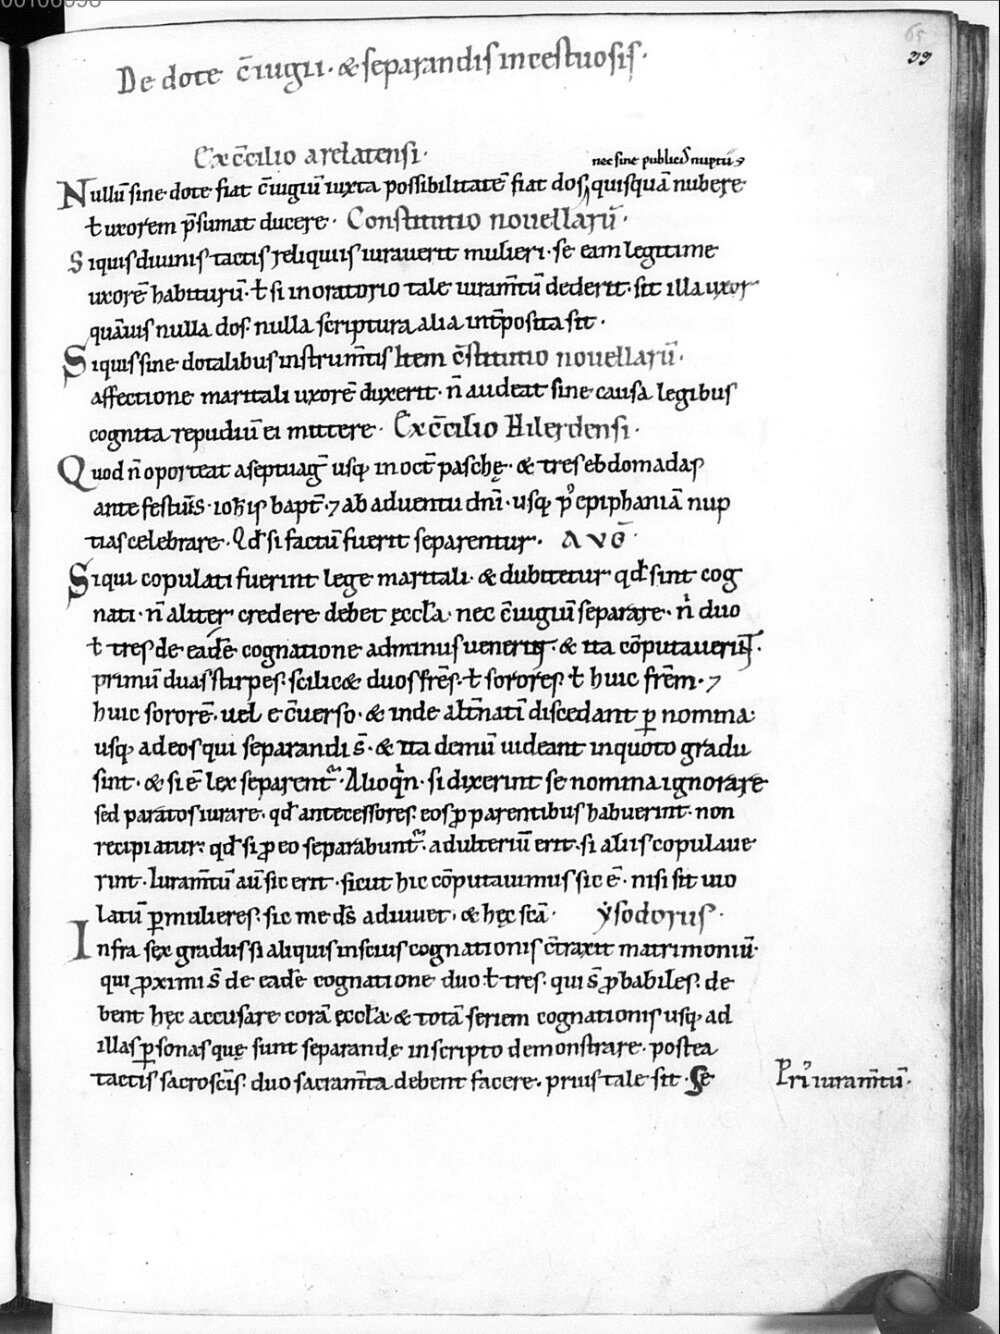 65
39
De dote c̄iugii · & separandis incestuosis ·
Ex c̄cilio arelatensi ·
nec sine publicis nuptiis
Nullū sine dote fiat c̄iugiū iuxta possibilitatē fiat dos, quisquā nubere
ł uxorem p̄sumat ducere · Constitutio nouellarū ·
Siquis diuinis tactis reliquiis iurauerit mulieri · se eam legitime
uxorē habiturū · ł si in oratorio tale iuram̄tū dederit · sit illa uxor
quāuis nulla dos · nulla scriptura alia int̄posita sit ·
Siquis sine dotalibus instrum̄tis Item c̄stitutio nouellarū ·
affectione maritali uxorē duxerit · n̄ audeat sine causa legibus
cognita repudiū ei mittere · Ex c̄cilio Hilerdensi ·
Quod n̄ oporteat a septuaḡ usq; in oct̄ paschę · & tres ebdomadas
ante festuīs · ioħis bapt̄ · ⁊ ab aduentu dn̄i · usq; pꝰ epiphaniā nup
tias celebrare · Qđ si factū fuerit separentur · AVḠ ·
Siqui copulati fuerint lege maritali · & dubitetur qđ sint cog
nati · n̄ aliter credere debet ęccła · nec c̄iugiū separare · nͥ duo
ł tres de eadē cognatione adminus uenerint · & ita cōputauerint ·
primū duas stirpes · scilic& duos frēs · ł sorores ł huic frēm · ⁊
huic sororē · uel e c̄uerso · & inde alt̄natī discedant ꝑ nomina ·
usq; ad eos qui separandi s̄ · & ita demū uideant in quoto gradu
sint · & si ē lex separent̄ · Alioqͥn · si dixerint se nomina ignorare
sed paratos iurare · qđ antecessores · eos ꝓ parentibus habuerint · non
recipiatur · qđ si ꝓ eo separabunt̄ · adulteriū erit · si aliis copulaue
rint · Iuram̄tū aū sic erit · sicut hic cōputauimus sic ē · nisi sit uio
latū ꝑ mulieres · sic me đs adiuuet · & hęc scā · ẏsodorus ·
Infra sex gradus si aliquis inscius cognationis c̄traxit matrimoniū ·
qui ꝓximi s̄ de eadē cognatione duo ł tres · qui s̄ ꝓbabiles · de
bent hęc accusare corā ęccła & totā seriem cognationis usq; ad
illas ꝑsonas quę sunt separandę in scripto demonstrare · postea
tactis sacrosc̄is · duo sacram̄ta debent facere · prius tale sit · Se
Priꝰ iuram̄tū ·